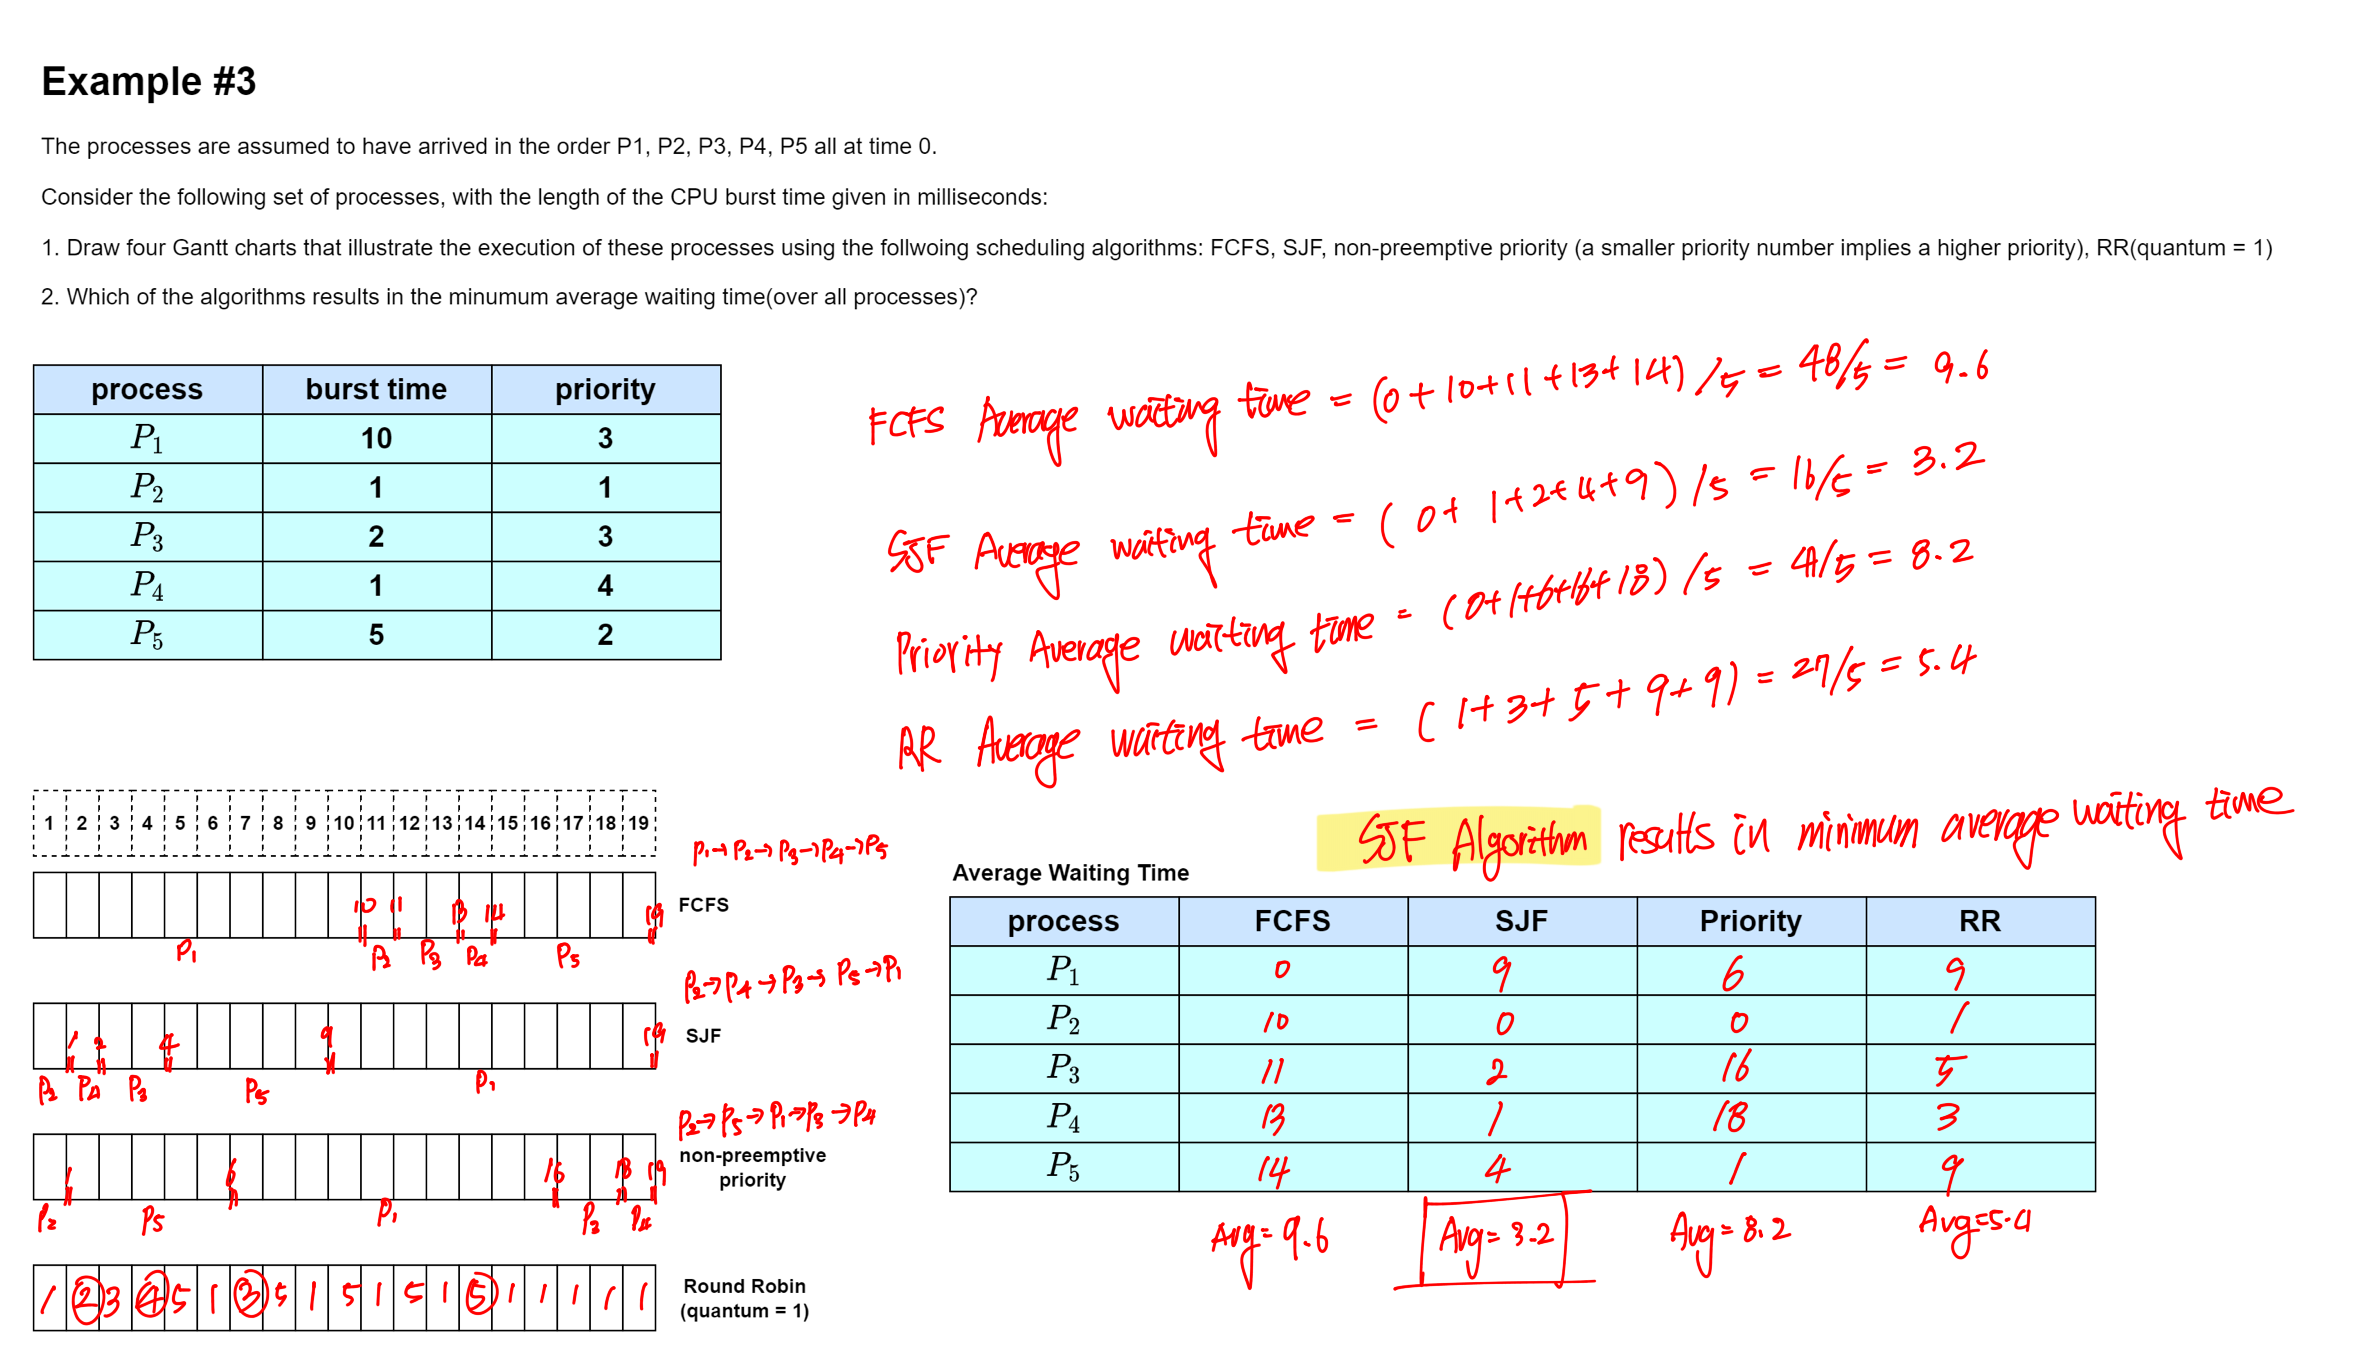 Example #3
The processes are assumed to have arrived in the order P1, P2, P3, P4, P5 all at time 0.
Consider the following set of processes, with the length of the CPU burst time given in milliseconds:
1. Draw four Gantt charts that illustrate the execution of these processes using the follwoing scheduling algorithms: FCFS, SJF, non-preemptive priority (a smaller priority number implies a higher priority), RR(quantum = 1)
2. Which of the algorithms results in the minumum average waiting time(over all processes)?
process burst time priority
P1 10 3
P2 1 1
P3 2 3
P4 1 4
P5 5 2
FCFS Average waiting time = (0+10+11+13+14)/5 = 48/5 = 9.6
SJF Average waiting time = (0+1+2+4+9)/5 = 16/5 = 3.2
Priority Average waiting time = (0+1+6+16+18)/5 = 41/5 = 8.2
RR Average waiting time = (1+3+5+9+9) = 27/5 = 5.4
SJF Algorithm results in minimum average waiting time
1 2 3 4 5 6 7 8 9 10 11 12 13 14 15 16 17 18 19
P1→P2→P3→P4→P5
10 11 13 14 19 FCFS
P1 P2 P3 P4 P5
P2→P4→P3→P5→P1
1 2 4 9 19 SJF
P2 P4 P3 P5 P1
P2→P5→P1→P3→P4
1 6 16 18 19 non-preemptive
priority
P2 P5 P1 P3 P4
1 2 3 4 5 1 3 5 1 5 1 5 1 5 1 1 1 1 1 Round Robin
(quantum = 1)
Average Waiting Time
process FCFS SJF Priority RR
P1 0 9 6 9
P2 10 0 0 1
P3 11 2 16 5
P4 13 1 18 3
P5 14 4 1 9
Avg= 9.6 Avg= 3.2 Avg= 8.2 Avg=5.4